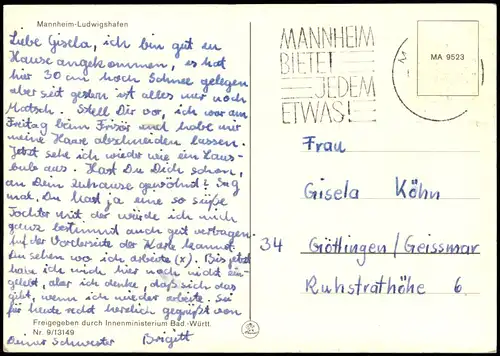 Mannheim-Ludwigshafen
Liebe Gisela, ich bin gut zu
Hause angekommen, es hat
hier 30 cm hoch Schnee gelegen
aber seit gestern ist alles nur noch
Matsch. Stell Dir vor, ich war am
Freitag beim Frisör und habe mir
meine Haare abschneiden lassen.
Jetzt sehe ich wieder wie ein Laus-
bub aus. Hast Du Dich schon,
an Dein Zuhause gewöhnt? Sag
mal. Du hast ja eine so süße
Tochter mit der würde ich mich
ganz bestimmt auch gut vertragen.
Auf der Vorderseite der Karte kannst
Du sehen wo ich arbeite (x). Bis jetzt
habe ich mich hier noch nicht ein-
gelebt, aber ich denke, daß sich das
gibt, wenn ich wieder arbeite. Sei
für heute recht herzlich gegrüßt von
Freigegeben durch Innenministerium Bad.-Württ.
Nr. 9/13149
Deiner Schwester Brigitt
MANNHEIM
BIETET
JEDEM
ETWAS!
MA 9523
Frau
Gisela Köhn
34 Göttingen/Geissmar
Ruhstrathöhe 6